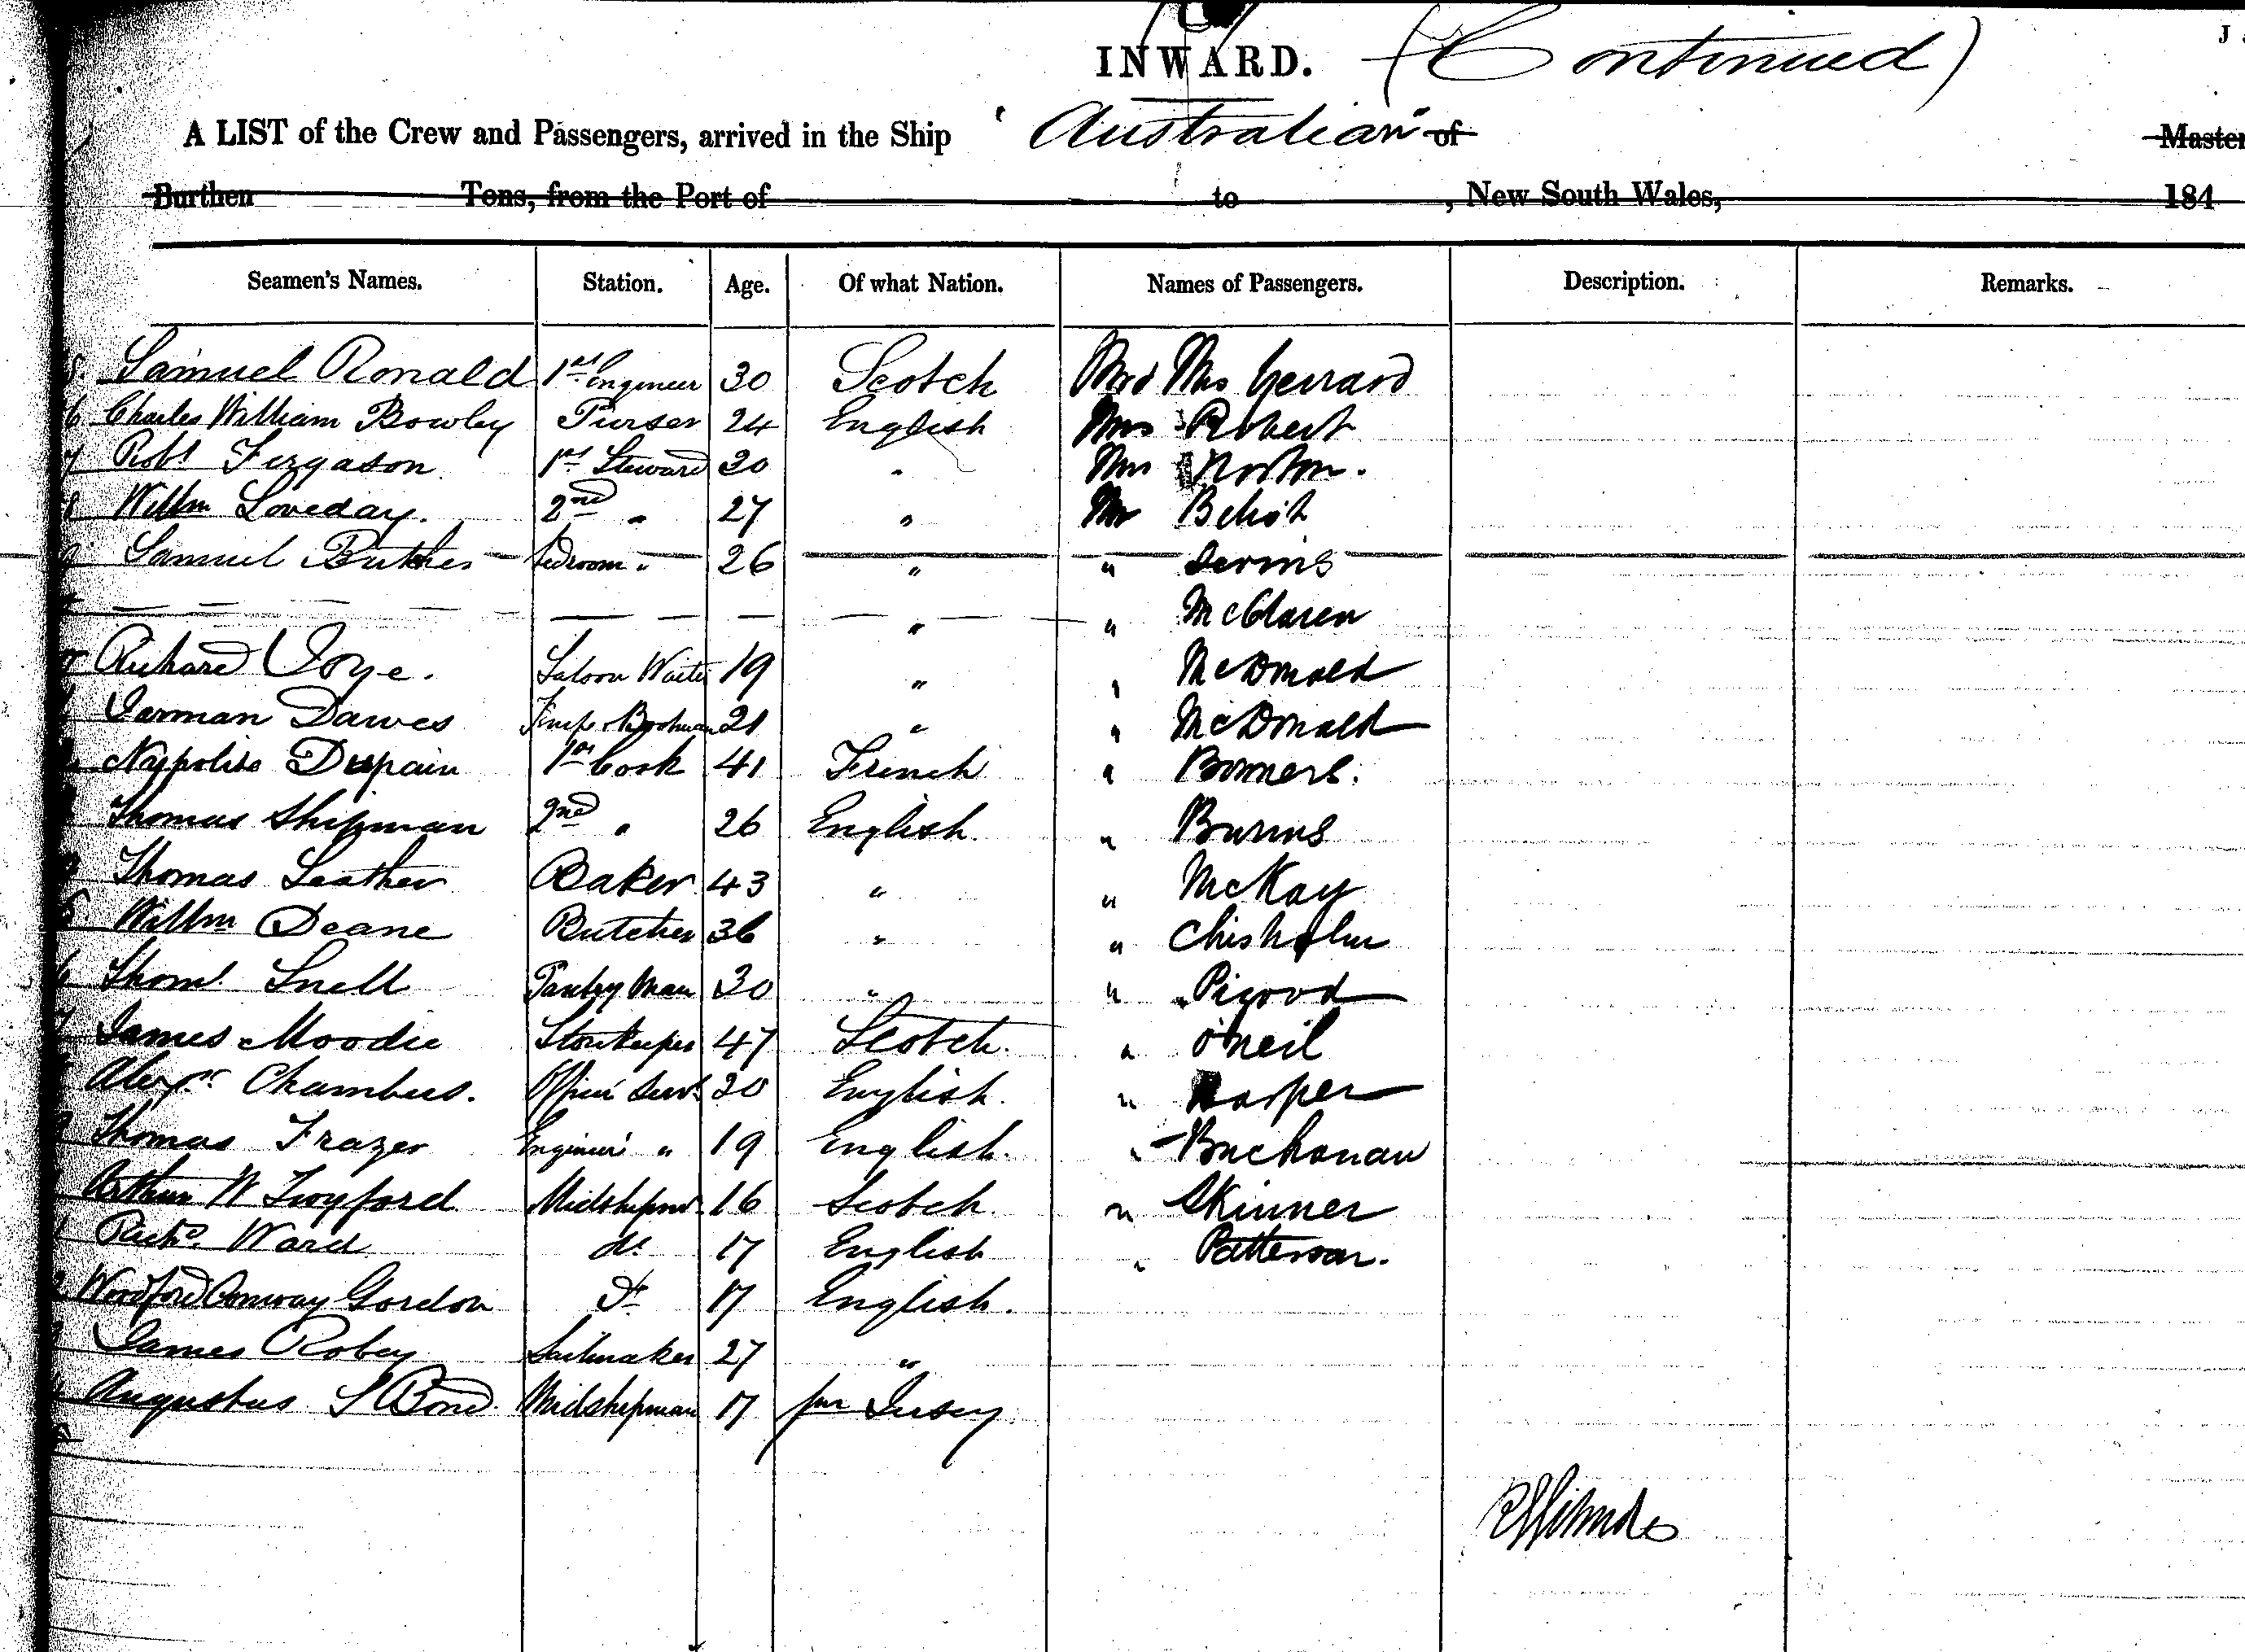 INWARD. (Continued)
A LIST of the Crew and Passengers, arrived in the Ship "Australian" of Master
Burthen Tons, from the Port of to , New South Wales, 184
Seamen's Names. Station. Age. Of what Nation. Names of Passengers. Description. Remarks.
Samuel Ronald 1st Engineer 30 Scotch Mrs Gerrard
6 Charles William Bowley Purser 24 English Mrs Robert
7 Robt Fergason 1st Steward 30 " Norton.
8 Willm Loveday. 2nd " 27 " Mr
Samuel Butcher Bedroom " 26 " "
" " McClaren
Richard Joye. Saloon Waiter 19 " " McDonald
Jarman Dawes 21 " " McDonald
Dupain 1st Cook 41 French "
Thomas Shipman 2nd " 26 English. " Burns
Thomas Leather Baker 43 " " McKay
Willm Deane Butcher 36 " " Chisholm
6 Thoms Snell Pantry Man 30 " " Pigood
7 James Moodie Storekeeper 47 Scotch. " O'Neil
Alexr Chambers. Officers Servt 20 English. " Harper
9 Thomas Frazer Engineers " 19 English. " Buchanan
Arthur W Twyford Midshipm 16 Scotch. " Skinner
1 Richd. Ward do 17 English " Patterson.
2 Woodford Conway Gordon do 17 English.
James Robey Sailmaker 27 "
Augustus S Bond. Midshipman 17 Jersey